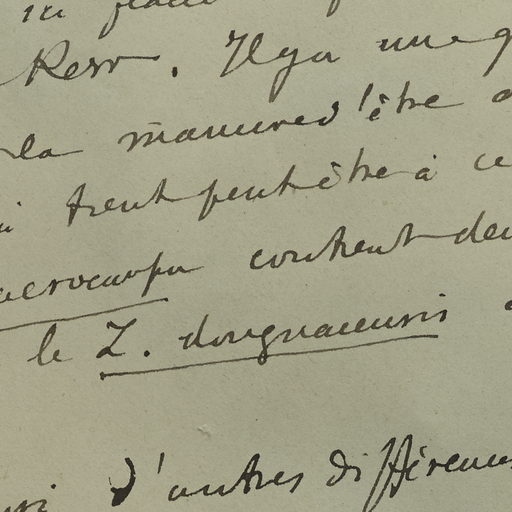 Kerr. Il y a une
la manière d'être
tient peut être à ce
macrocarpa contient
le Z. dongnaiensis
d'autres différences